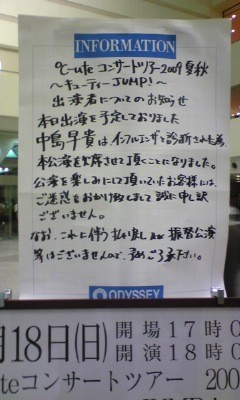 INFORMATION
℃-ute コンサートツアー2009夏秋
～キューティーJUMP!～
出演者についてのお知らせ
本日出演を予定しておりました
中島早貴は、インフルエンザと診断された為
本公演を欠席させて頂くことになりました。
公演を楽しみにして頂いていたお客様には、
ご迷惑をおかけ致しまして誠に申し訳
ございません。
なお、これに伴う払い戻し及び振替公演
等はございませんので、予めご了承下さい。
ODYSSEY
月18日(日)
開場17時0
開演18時
uteコンサートツアー 200